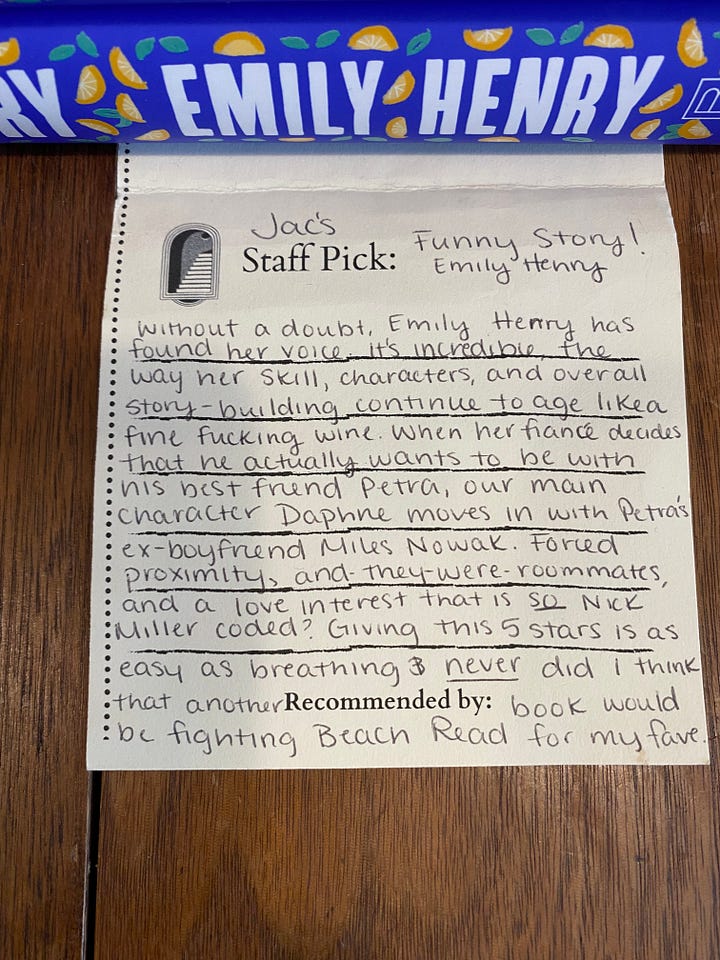 RY EMILY HENRY
Jac's
Staff Pick: Funny Story!
Emily Henry
Without a doubt, Emily Henry has
found her voice. it's incredible, the
way her skill, characters, and overall
story-building continue to age like a
fine fucking wine. When her fiancé decides
that he actually wants to be with
his best friend Petra, our main
character Daphne moves in with Petra's
ex-boyfriend Miles Nowak. Forced
proximity, and-they-were-roommates,
and a love interest that is so Nick
Miller coded? Giving this 5 stars is as
easy as breathing & never did i think
that another Recommended by: book would
be fighting Beach Read for my fave.